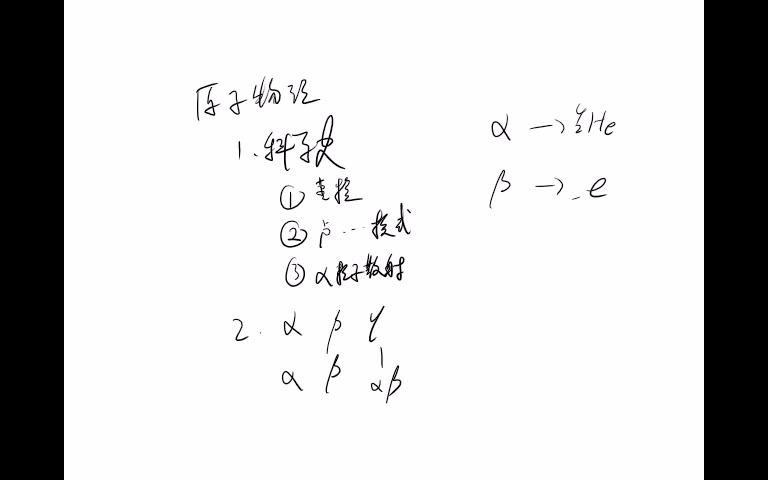 原子物理
1. 科学史
①
② 卢…模式
③ α粒子散射
2. α β γ
α β αβ
α → ⁴₂He
β → ₋e